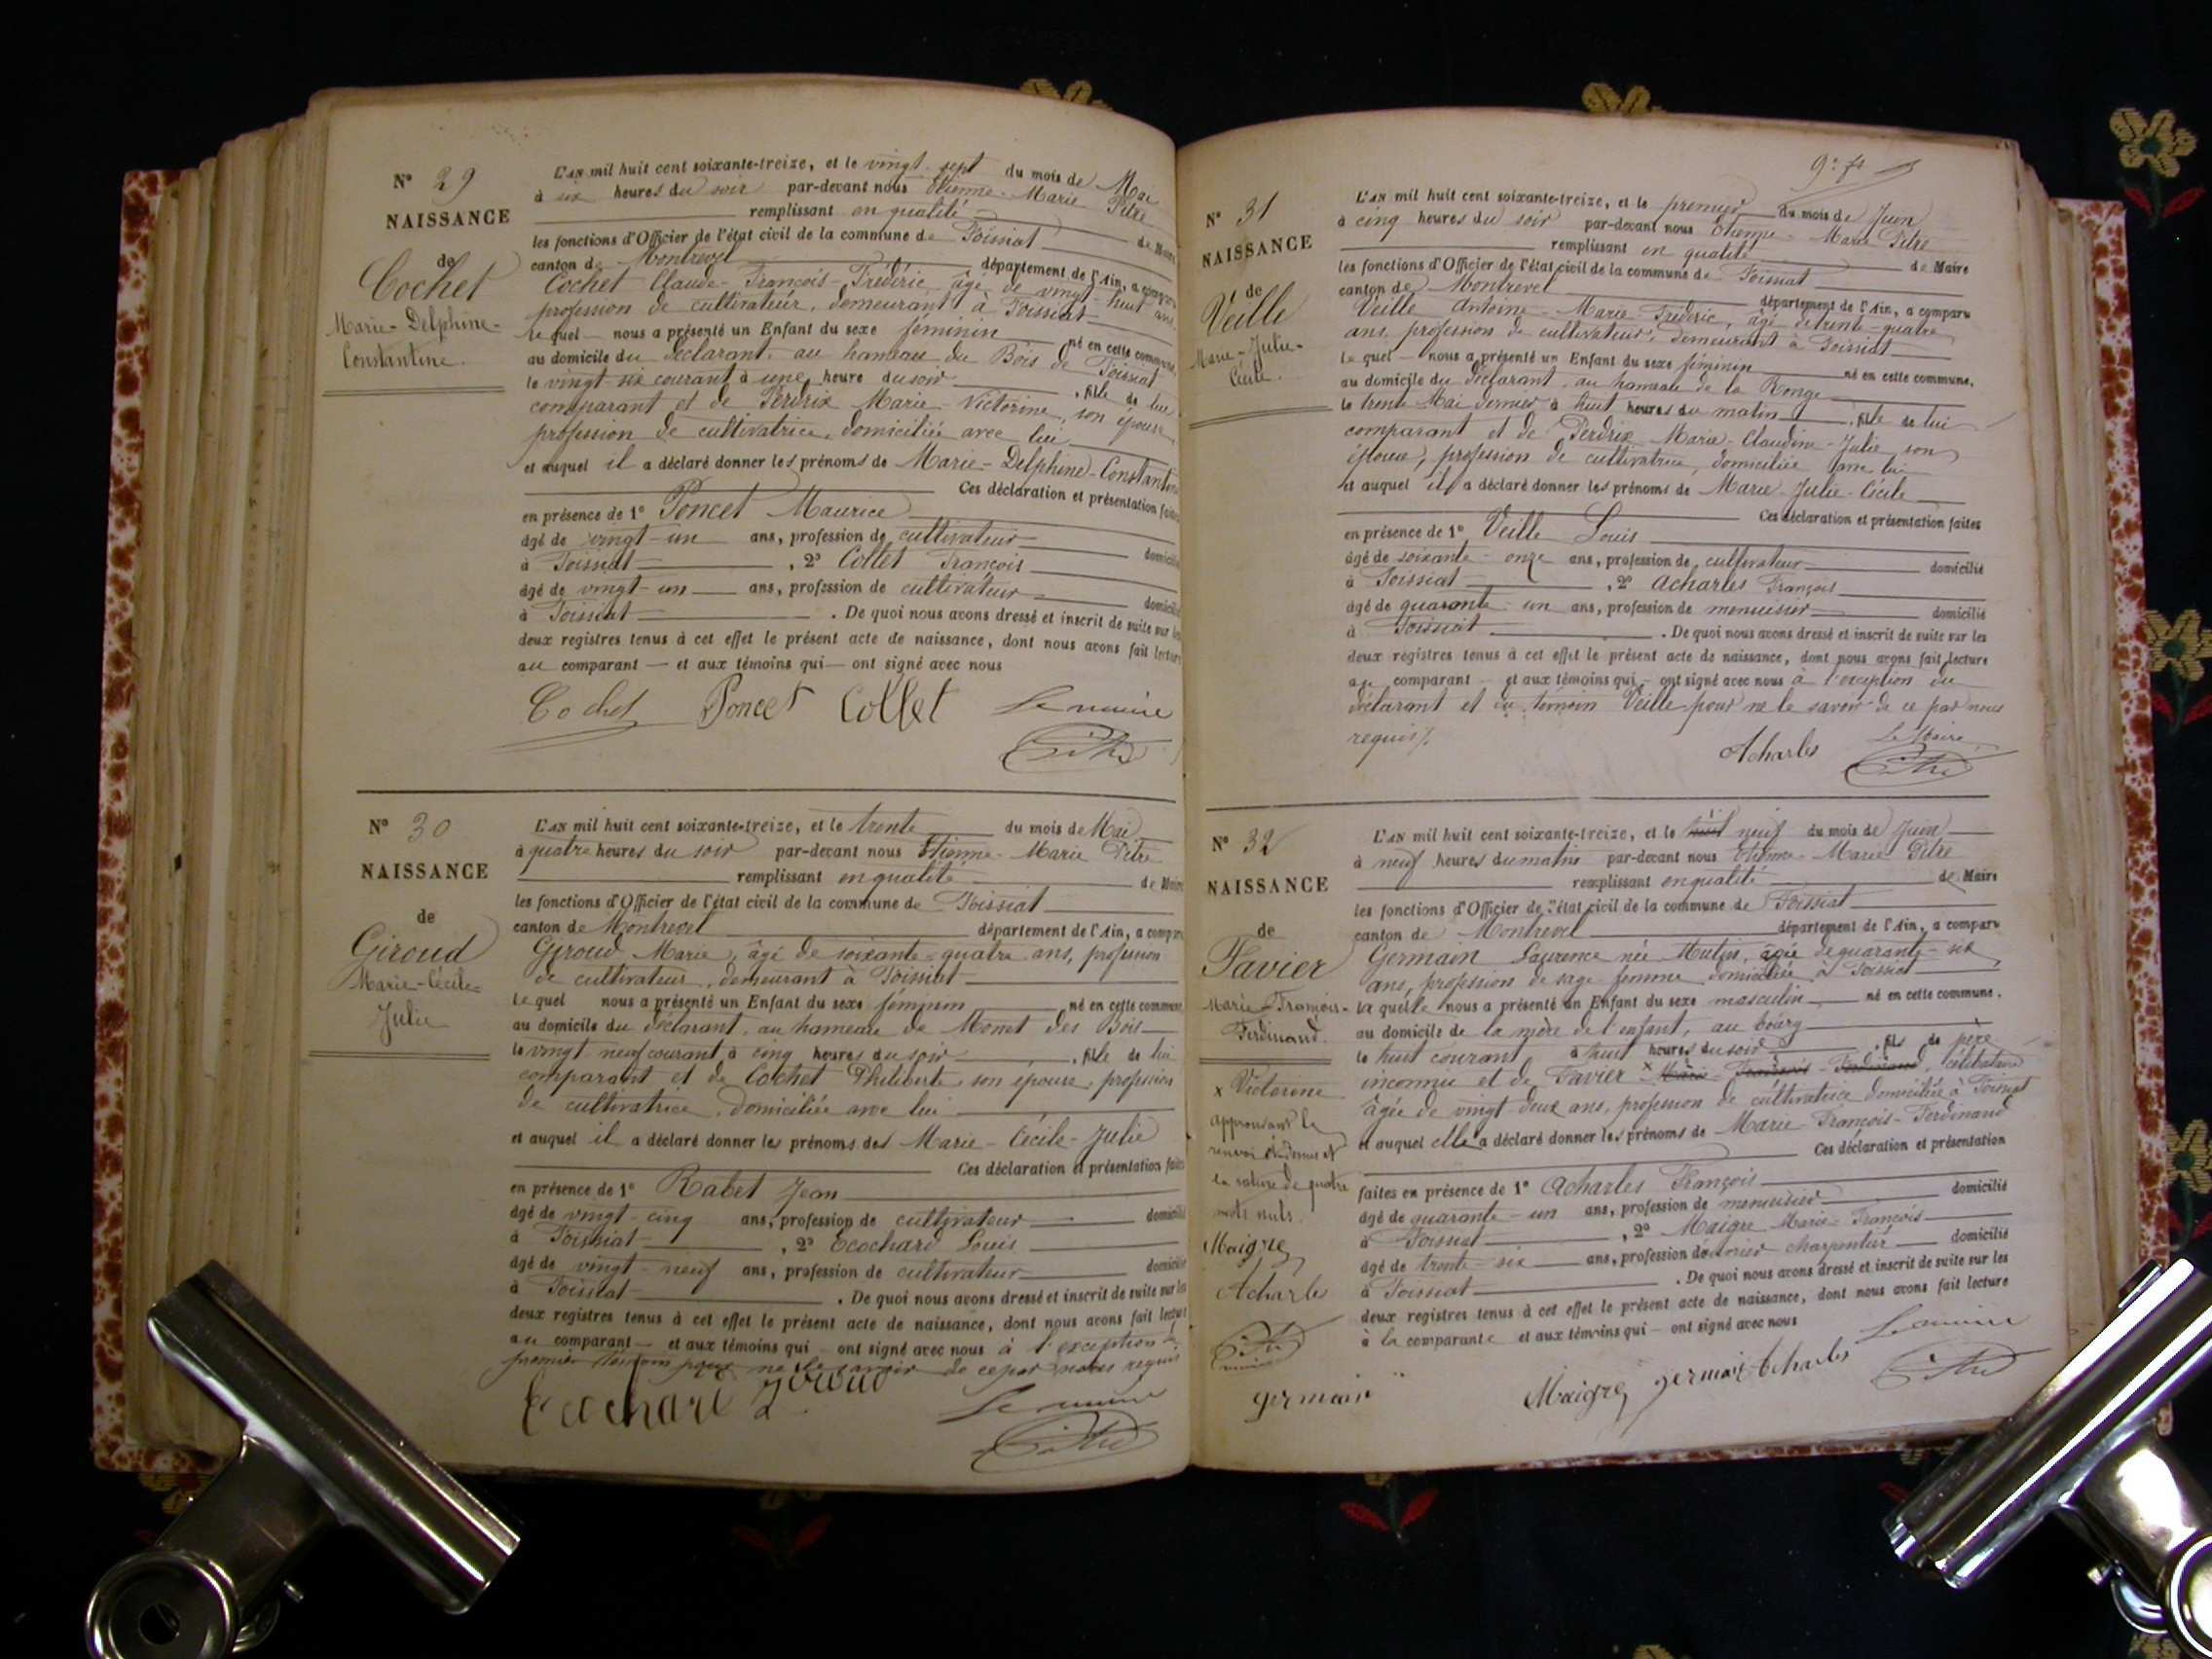 N° 29
NAISSANCE
de
Cochet
Marie-Delphine-
Constantine.
L'AN mil huit cent soixante-treize, et le vingt-sept du mois de Mai
à six heures du soir par-devant nous Etienne-Marie Pitre
remplissant en qualité de Maire
les fonctions d'Officier de l'état civil de la commune de Foissiat
canton de Montrevel département de l'Ain, a comparu
Cochet Claude-François-Frédéric, âgé de vingt-huit ans,
profession de cultivateur, demeurant à Foissiat
le quel nous a présenté un Enfant du sexe féminin né en cette commune,
au domicile du déclarant, au hameau du Bois de Foissiat
le vingt-six courant à une heure du soir, fille de lui
comparant et de Perdrix Marie-Victorine, son épouse,
profession de cultivatrice, domiciliée avec lui
et auquel il a déclaré donner les prénoms de Marie-Delphine-Constantine
Ces déclaration et présentation faites
en présence de 1° Poncet Maurice
âgé de vingt-un ans, profession de cultivateur domicilié
à Foissiat, 2° Collet François
âgé de vingt-un ans, profession de cultivateur domicilié
à Foissiat. De quoi nous avons dressé et inscrit de suite sur les
deux registres tenus à cet effet le présent acte de naissance, dont nous avons fait lecture
au comparant — et aux témoins qui — ont signé avec nous
Cochet Poncet Collet Le maire
Pitre
N° 30
NAISSANCE
de
Giroud
Marie-Cécile-
Julie
L'AN mil huit cent soixante-treize, et le trente du mois de Mai
à quatre heures du soir par-devant nous Etienne-Marie Pitre
remplissant en qualité de Maire
les fonctions d'Officier de l'état civil de la commune de Foissiat
canton de Montrevel département de l'Ain, a comparu
Giroud Marie, âgé de soixante-quatre ans, profession
de cultivateur, demeurant à Foissiat
le quel nous a présenté un Enfant du sexe féminin né en cette commune
au domicile du déclarant, au hameau de Monet des Bois
le vingt neuf courant à cinq heures du soir, fille de lui
comparant et de Cochet Philiberte, son épouse, profession
de cultivatrice, domiciliée avec lui
et auquel il a déclaré donner les prénoms des Marie-Cécile-Julie
Ces déclaration et présentation faites
en présence de 1° Rabet Jean
âgé de vingt-cinq ans, profession de cultivateur domicilié
à Foissiat, 2° Ecochard Louis
âgé de vingt-neuf ans, profession de cultivateur domicilié
à Foissiat. De quoi nous avons dressé et inscrit de suite sur les
deux registres tenus à cet effet le présent acte de naissance, dont nous avons fait lecture
au comparant — et aux témoins qui ont signé avec nous à l'exception du
premier témoin pour ne le savoir de ce par nous requis
Ecochard giroud Le maire
Pitre
9e
N° 31
NAISSANCE
de
Veille
Marie-Julie-
Cécile.
L'AN mil huit cent soixante-treize, et le premier du mois de Juin
à cinq heures du soir par-devant nous Etienne-Marie Pitre
remplissant en qualité de Maire
les fonctions d'Officier de l'état civil de la commune de Foissiat
canton de Montrevel département de l'Ain, a comparu
Veille Antoine-Marie-Frédéric, âgé de trente-quatre
ans, profession de cultivateur, demeurant à Foissiat
le quel — nous a présenté un Enfant du sexe féminin né en cette commune,
au domicile du déclarant, au hameau de la Ronge
le trente Mai dernier à huit heures du matin, fille de lui
comparant et de Perdrix Marie-Claudine-Julie, son
épouse, profession de cultivatrice, domiciliée avec lui
et auquel il a déclaré donner les prénoms de Marie-Julie-Cécile
Ces déclaration et présentation faites
en présence de 1° Veille Louis
âgé de soixante-onze ans, profession de cultivateur domicilié
à Foissiat, 2° Acharles François
âgé de quarante-un ans, profession de menuisier domicilié
à Foissiat. De quoi nous avons dressé et inscrit de suite sur les
deux registres tenus à cet effet le présent acte de naissance, dont nous avons fait lecture
au comparant et aux témoins qui — ont signé avec nous à l'exception du
déclarant et du témoin Veille pour ne le savoir de ce par nous
requis
Acharles Le Maire
Pitre
N° 32
NAISSANCE
de
Favier
Marie-François-
Ferdinand.
x Victorine
approuvant le
renvoi ci-dessus et
la rature de quatre
mots nuls.
Maigre
Acharles
Pitre
maire
germain
L'AN mil huit cent soixante-treize, et le huit neuf du mois de Juin
à neuf heures du matin par-devant nous Etienne-Marie Pitre
remplissant en qualité de Maire
les fonctions d'Officier de l'état civil de la commune de Foissiat
canton de Montrevel département de l'Ain, a comparu
Germain Laurence née Mutin, âgée de quarante-six
ans, profession de sage-femme domiciliée à Foissiat
la quelle nous a présenté un Enfant du sexe masculin né en cette commune,
au domicile de la mère de l'enfant, au bourg
le huit courant à huit heures du soir, fils de père
inconnu et de Favier x Marie-François-Ferdinand, célibataire
âgée de vingt deux ans, profession de cultivatrice domiciliée à Foissiat
et auquel elle a déclaré donner les prénoms de Marie-François-Ferdinand
Ces déclaration et présentation
faites en présence de 1° Acharles François
âgé de quarante-un ans, profession de menuisier domicilié
à Foissiat, 2° Maigre Marie-François
âgé de trente-six ans, profession de charpentier domicilié
à Foissiat. De quoi nous avons dressé et inscrit de suite sur les
deux registres tenus à cet effet le présent acte de naissance, dont nous avons fait lecture
à la comparante et aux témoins qui — ont signé avec nous
Maigre germain Acharles Le maire
Pitre